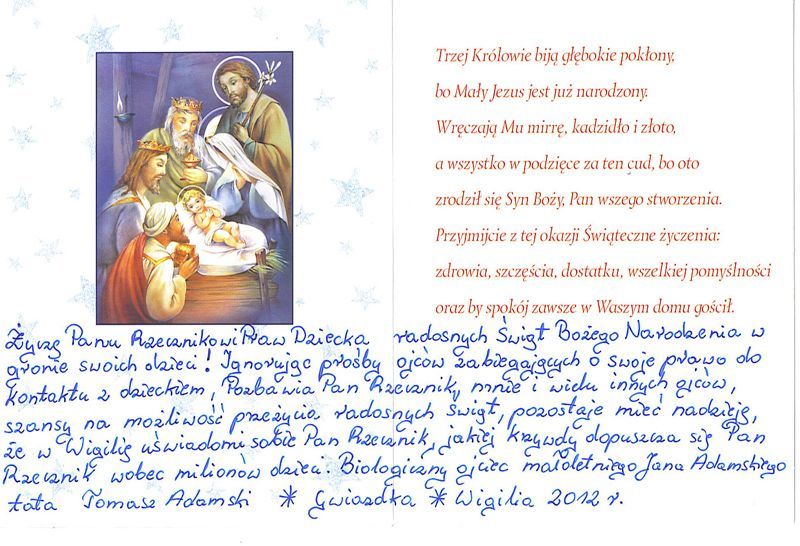 Trzej Królowie biją głębokie pokłony,
bo Mały Jezus jest już narodzony.
Wręczają Mu mirrę, kadzidło i złoto,
a wszystko w podzięce za ten cud, bo oto
zrodził się Syn Boży, Pan wszego stworzenia.
Przyjmijcie z tej okazji Świąteczne życzenia:
zdrowia, szczęścia, dostatku, wszelkiej pomyślności
oraz by spokój zawsze w Waszym domu gościł.
Życzę Panu Rzecznikowi Praw Dziecka radosnych Świąt Bożego Narodzenia w
gronie swoich dzieci! Ignorując prośby ojców zabiegających o swoje prawo do
kontaktu z dzieckiem, Pozbawia Pan Rzecznik, mnie i wielu innych ojców,
szansy na możliwość przeżycia radosnych świąt, pozostaje mieć nadzieję,
że w Wigilię uświadomi sobie Pan Rzecznik, jakiej krzywdy dopuszcza się Pan
Rzecznik wobec milionów dzieci. Biologiczny ojciec małoletniego Jana Adamskiego
tata Tomasz Adamski * Gwiazdka * Wigilia 2012 r.